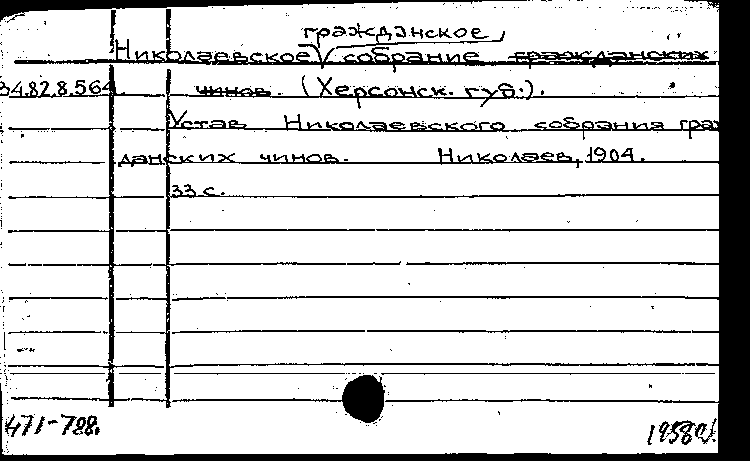 гражданское,
Николаевское собрание гражданских
34.82.8.564 чинов. (Херсонск. губ.).
Устав Николаевского собрания граж
данских чинов. Николаев, 1904.
33 с.
471-788.